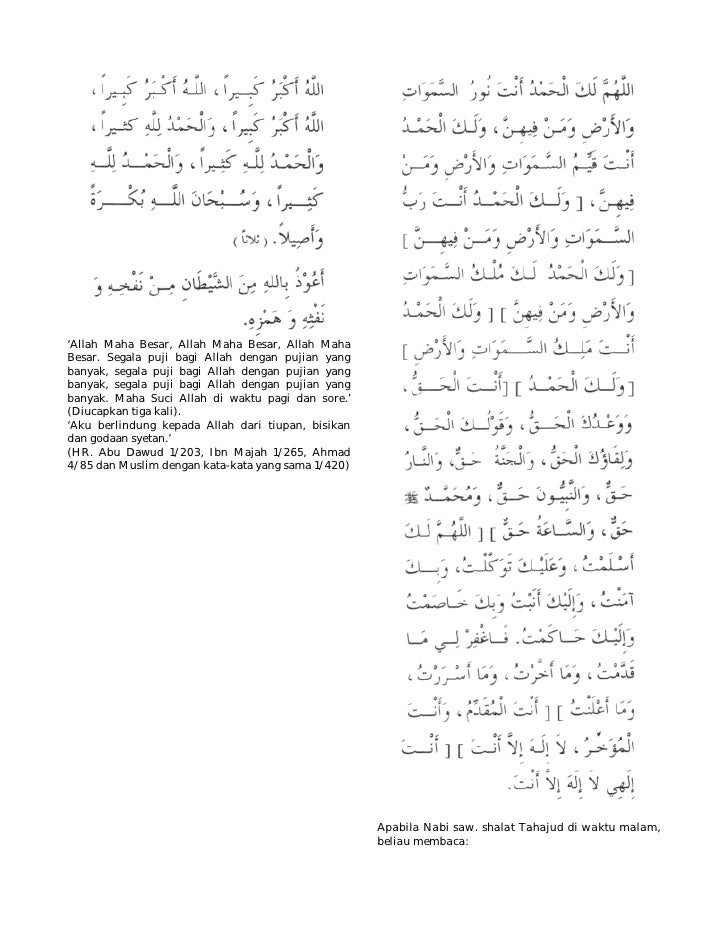 اللَّهُ أَكْبَرُ كَبِيراً، اللَّهُ أَكْبَرُ كَبِيراً،
اللَّهُ أَكْبَرُ كَبِيراً، وَالْحَمْدُ لِلَّهِ كَثِيراً،
وَالْحَمْدُ لِلَّهِ كَثِيراً، وَالْحَمْدُ لِلَّهِ
كَثِيراً، وَسُبْحَانَ اللَّهِ بُكْرَةً
وَأَصِيلاً. (ثلاثاً)
أَعُوْذُ بِاللهِ مِنَ الشَّيْطَانِ مِنْ نَفْخِهِ وَ
نَفْثِهِ وَ هَمْزِهِ.
‘Allah Maha Besar, Allah Maha Besar, Allah Maha
Besar. Segala puji bagi Allah dengan pujian yang
banyak, segala puji bagi Allah dengan pujian yang
banyak, segala puji bagi Allah dengan pujian yang
banyak. Maha Suci Allah di waktu pagi dan sore.’
(Diucapkan tiga kali).
‘Aku berlindung kepada Allah dari tiupan, bisikan
dan godaan syetan.’
(HR. Abu Dawud 1/203, Ibn Majah 1/265, Ahmad
4/85 dan Muslim dengan kata-kata yang sama 1/420)
اللَّهُمَّ لَكَ الْحَمْدُ أَنْتَ نُورُ السَّمَوَاتِ
وَالأَرْضِ وَمَنْ فِيهِنَّ، وَلَكَ الْحَمْدُ
أَنْتَ قَيِّمُ السَّمَوَاتِ وَالأَرْضِ وَمَنْ
فِيهِنَّ، [ وَلَكَ الْحَمْدُ أَنْتَ رَبُّ
السَّمَوَاتِ وَالأَرْضِ وَمَنْ فِيهِنَّ ]
[ وَلَكَ الْحَمْدُ لَكَ مُلْكُ السَّمَوَاتِ
وَالأَرْضِ وَمَنْ فِيهِنَّ ] [ وَلَكَ الْحَمْدُ
أَنْتَ مَلِكُ السَّمَوَاتِ وَالأَرْضِ ]
[ وَلَكَ الْحَمْدُ ] [أَنْتَ الْحَقُّ،
وَوَعْدُكَ الْحَقُّ، وَقَوْلُكَ الْحَقُّ،
وَلِقَاؤُكَ الْحَقُّ، وَالْجَنَّةُ حَقٌّ، وَالنَّارُ
حَقٌّ، وَالنَّبِيُّونَ حَقٌّ، وَمُحَمَّدٌ ﷺ
حَقٌّ، وَالسَّاعَةُ حَقٌّ ] [ اللَّهُمَّ لَكَ
أَسْلَمْتُ، وَعَلَيْكَ تَوَكَّلْتُ، وَبِكَ
آمَنْتُ، وَإِلَيْكَ أَنَبْتُ وَبِكَ خَاصَمْتُ
وَإِلَيْكَ حَاكَمْتُ. فَاغْفِرْ لِي مَا
قَدَّمْتُ، وَمَا أَخَّرْتُ، وَمَا أَسْرَرْتُ،
وَمَا أَعْلَنْتُ ] [ أَنْتَ الْمُقَدِّمُ، وَأَنْتَ
الْمُؤَخِّرُ، لاَ إِلَهَ إِلاَّ أَنْتَ ] [ أَنْتَ
إِلَهِي لاَ إِلَهَ إِلاَّ أَنْتَ.
Apabila Nabi saw. shalat Tahajud di waktu malam,
beliau membaca: